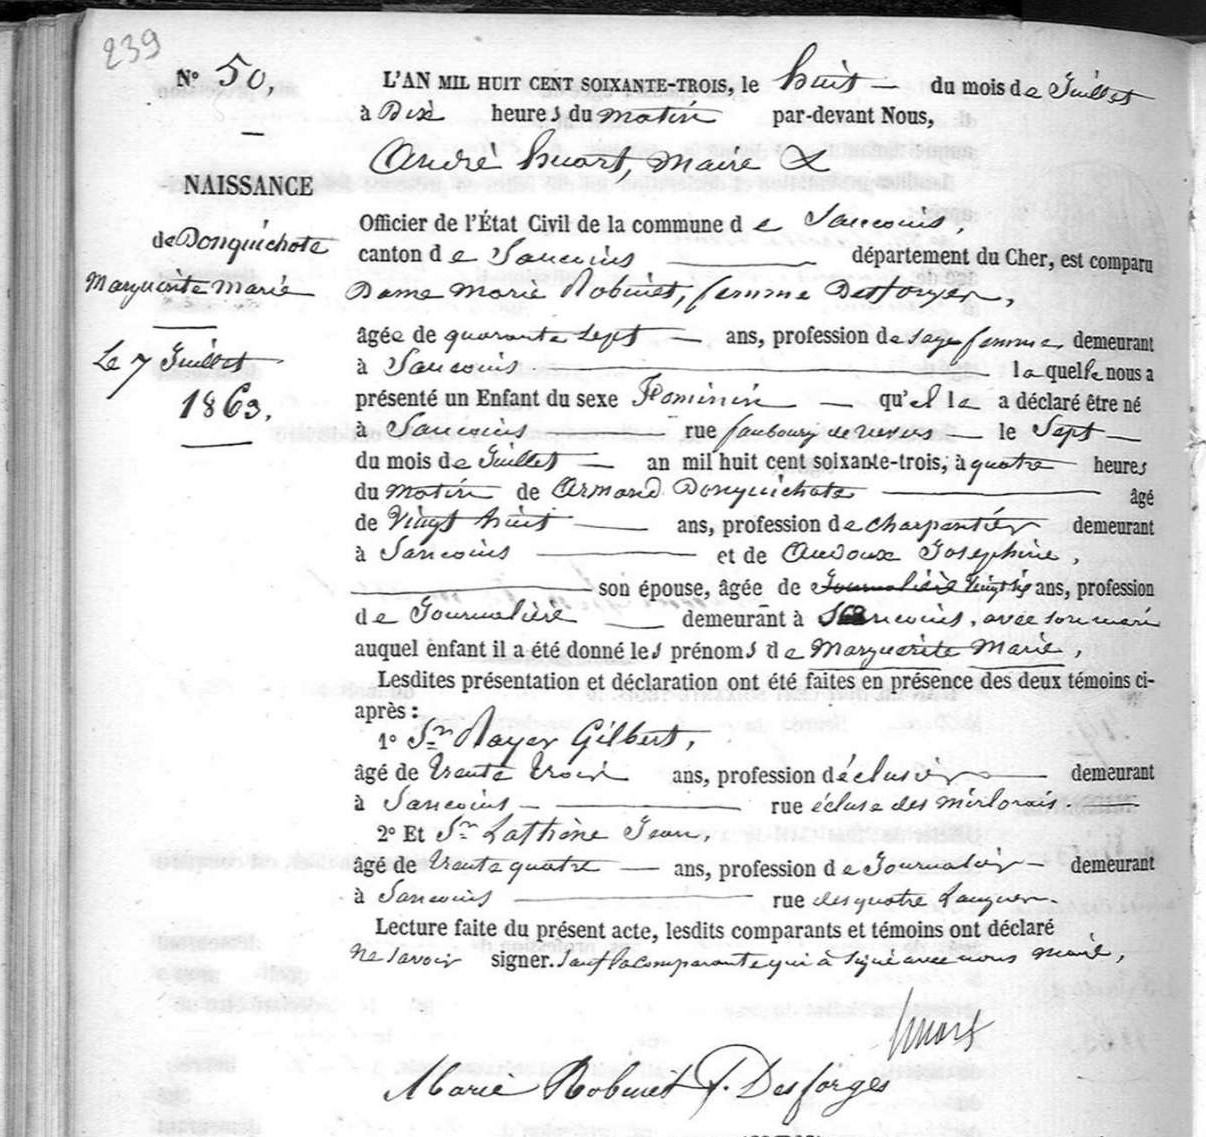 239
N° 50,
NAISSANCE
de Donquichote
Marguerite Marie
Le 7 Juillet
1863.
L'AN MIL HUIT CENT SOIXANTE-TROIS, le huit du mois de Juillet
à Dix heures du matin par-devant Nous,
André huart, Maire
Officier de l'État Civil de la commune de Sancoins,
canton de Sancoins département du Cher, est comparu
Dame Marie Robinet, femme Desforges,
âgée de quarante sept ans, profession de sage femme, demeurant
à Sancoins laquelle nous a
présenté un Enfant du sexe Féminin qu'elle a déclaré être né
à Sancoins rue faubourg de nevers le Sept
du mois de Juillet an mil huit cent soixante-trois, à quatre heures
du matin de Armand Donquichote âgé
de Vingt huit ans, profession de charpentier demeurant
à Sancoins et de Audoux Joséphine,
son épouse, âgée de Journalière Vingt six ans, profession
de Journalière demeurant à Sancoins, avec son mari
auquel enfant il a été donné les prénoms de Marguerite Marie,
Lesdites présentation et déclaration ont été faites en présence des deux témoins ci-
après :
1° Sr Gilbert,
âgé de trente trois ans, profession d'éclusier demeurant
à Sancoins rue écluse des
2° Et Sr Jean,
âgé de trente quatre ans, profession de Journalier demeurant
à Sancoins rue des quatre
Lecture faite du présent acte, lesdits comparants et témoins ont déclaré
ne savoir signer. Sauf la comparante qui a signé avec nous Maire,
huart
Marie Robinet f. Desforges